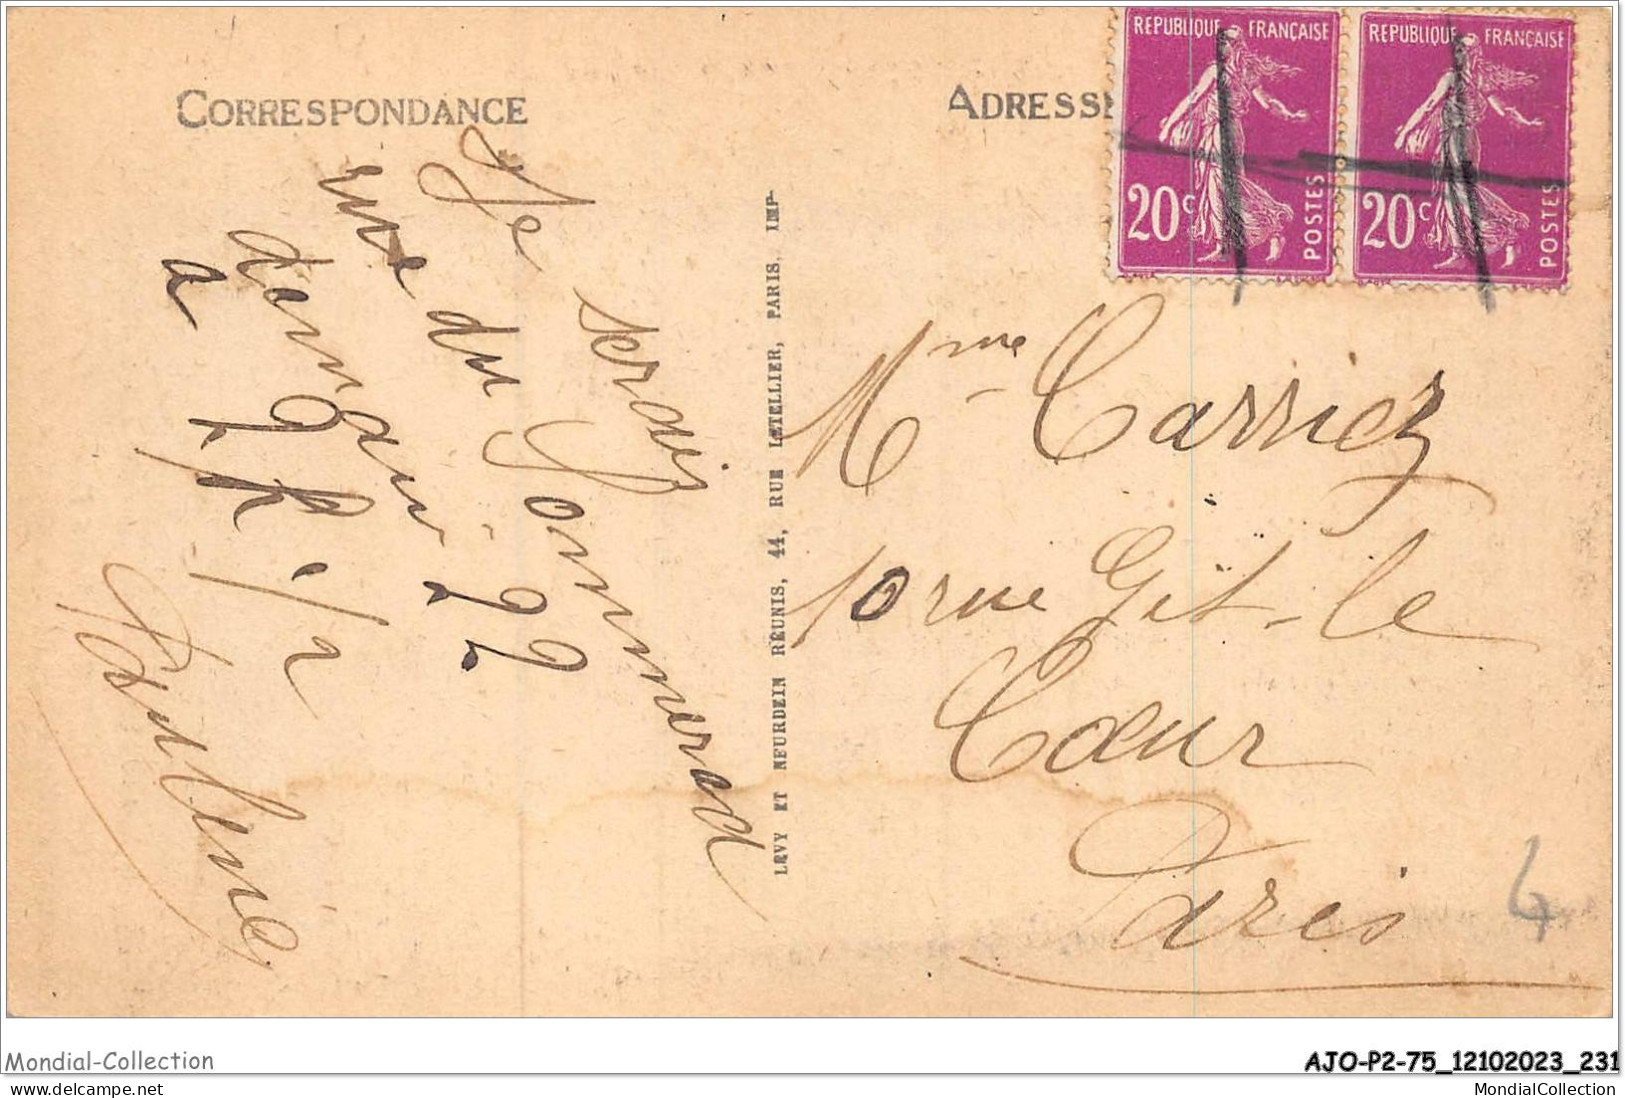 CORRESPONDANCE
Je serais
rue du Sommerard
demain 22
a 2h 1/2
ADRESSE
REPUBLIQUE FRANÇAISE
20c
POSTES
REPUBLIQUE FRANÇAISE
20c
POSTES
LÉVY ET NEURDEIN RÉUNIS, 44, RUE LETELLIER, PARIS. IMP-
Mme Carriez
10 rue Git-le
Cœur
Paris
4
Mondial-Collection
AJO-P2-75_12102023_231
fr.delcampe.net
MondialCollection